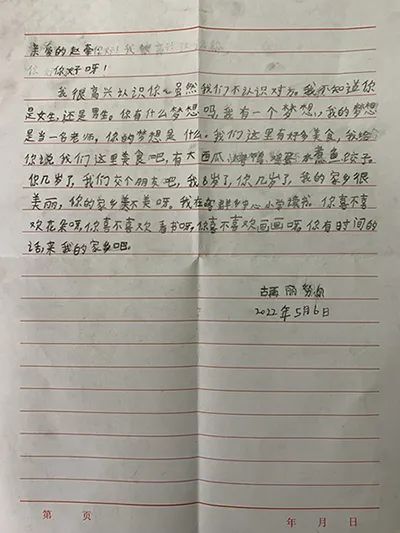 亲爱的赵
你好呀！
我很高兴认识你～虽然我们不认识对方。我不知道你
是女生，还是男生。你有什么梦想吗，我有一个梦想，我的梦想
是当一名老师。你的梦想是什么。我们这里有好多美食，我给
你说我们这里美食吧，有大西瓜 水煮鱼 饺子
你几岁了，我们交个朋友吧，我8岁了，你几岁了，我的家乡很
美丽，你的家乡美不美呀。我在 群乡中心小学读书。你喜不喜
欢花朵呀，你喜不喜欢看书呀，你喜不喜欢画画呀，你有时间的
话来我的家乡吧。
古再丽努尔
2022年5月6日
第 页 年 月 日